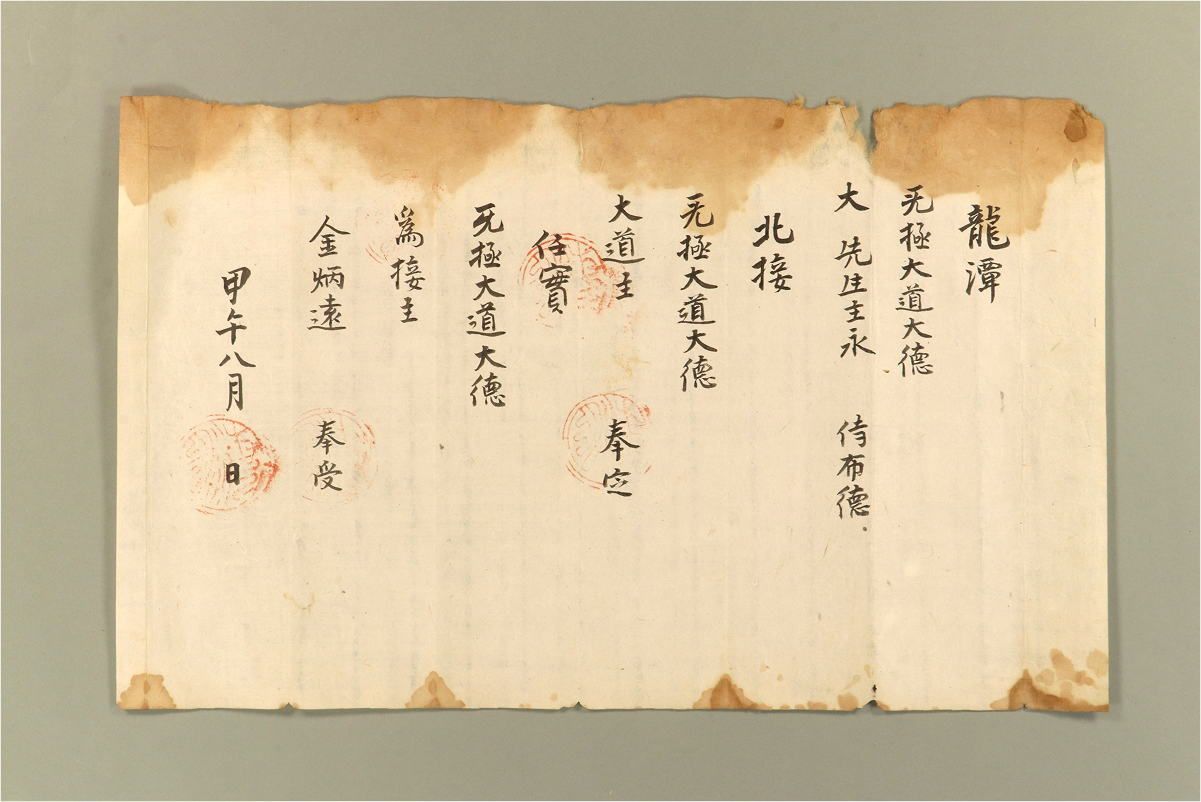 龍潭
无極大道大德
大 先生主永 侍布德
北接
无極大道大德
大道主 奉定
任實
无極大道大德
爲接主
金炳遠 奉受
甲午八月 日